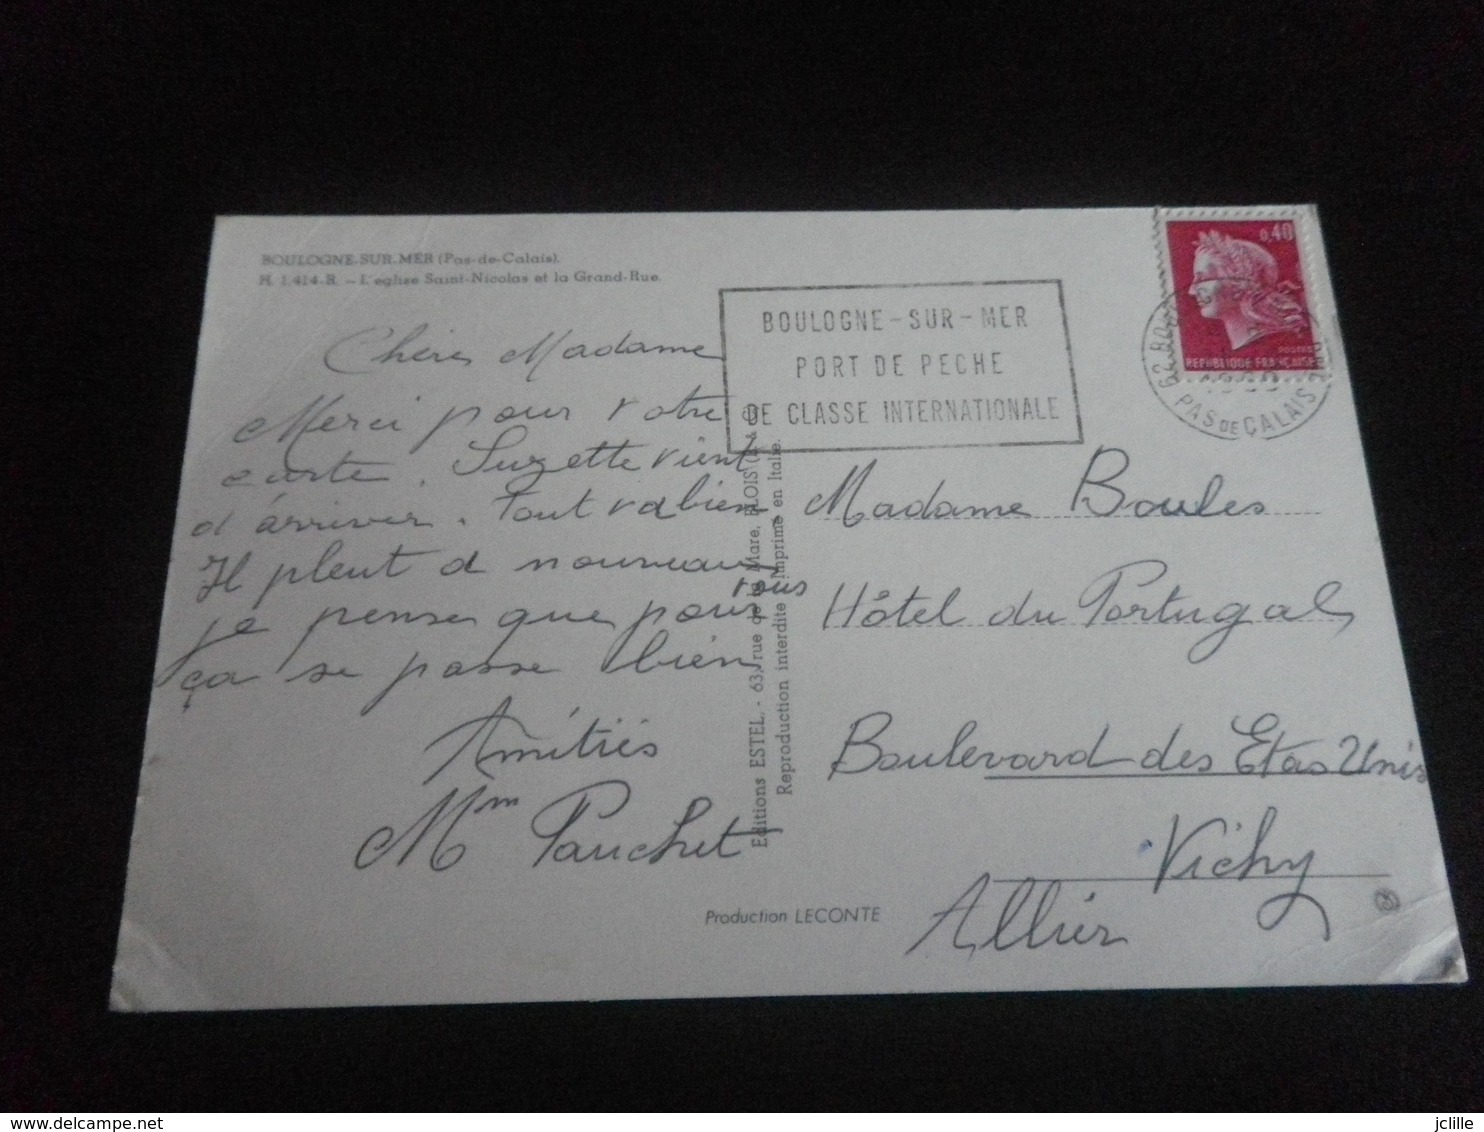 BOULOGNE-SUR-MER (Pas-de-Calais).
H. 1.414-R. - L'eglise Saint-Nicolas et la Grand-Rue.
BOULOGNE - SUR - MER
PORT DE PECHE
DE CLASSE INTERNATIONALE
0,40
POSTES
REPUBLIQUE FRANÇAISE
PAS DE CALAIS
Chère Madame
Merci pour votre
carte. Suzette vient
d'arriver. Tout va bien
Il pleut à nouveau
je pense que pour vous
ça se passe bien
Amitiés
Mm Pauchet
Editions ESTEL. - 63, rue de la Mare, BLOIS (L & C)
Reproduction interdite Imprimé en Italie.
Production LECONTE
Madame Boules
Hôtel du Portugal
Boulevard des Etas Unis
Vichy
Allier
jclille